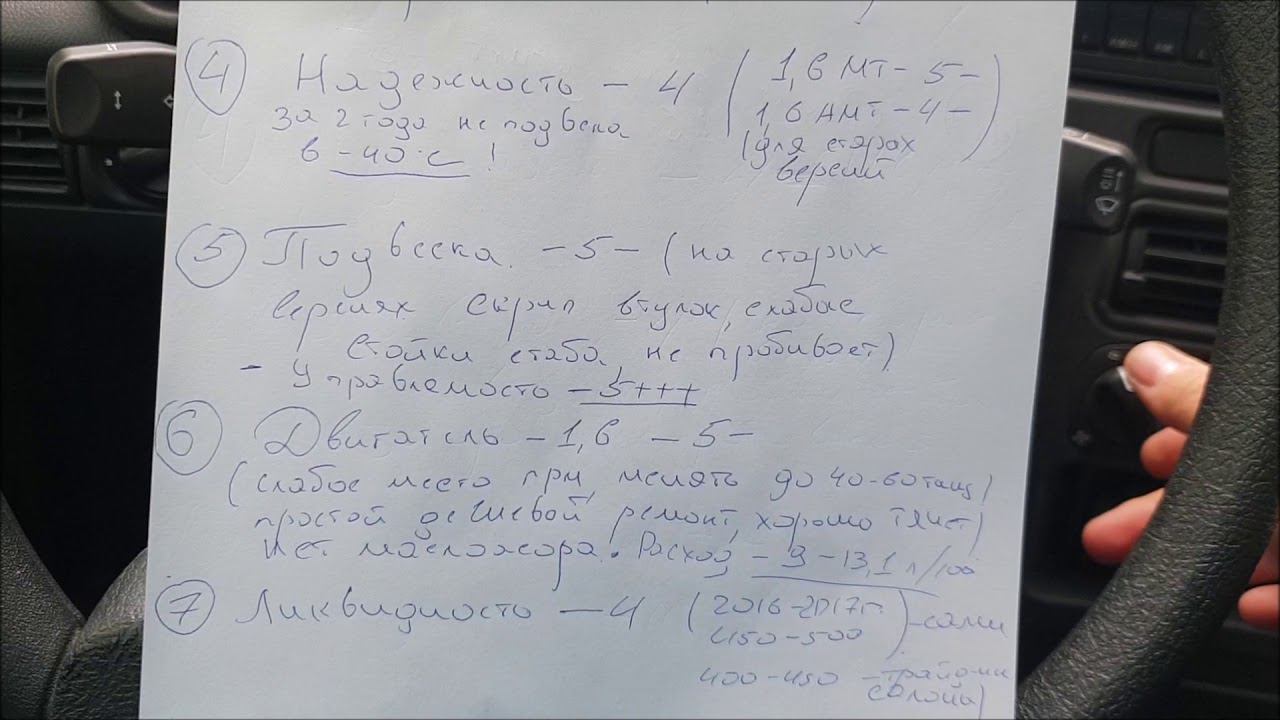 4 Надежность – 4 (1,6 МТ – 5–
1,6 АМТ – 4 –)
за 2 года не подвела (для старых
в –40°С! версий
5 Подвеска. – 5 – (на старых
версиях скрип втулок, слабые
стойки стаба, не пробивает)
- Управлемость – 5+++
6 Двигатель – 1,6 – 5 –
(слабое место ГРМ, менять до 40-60 тыщ)
простой дешевой ремонт, хорошо тянет)
Нет масложора! Расход – 9 – 13,1 л/100
7 Ликвидность – 4 (2016-2017г.
450-500) –
400-450 –
салона)